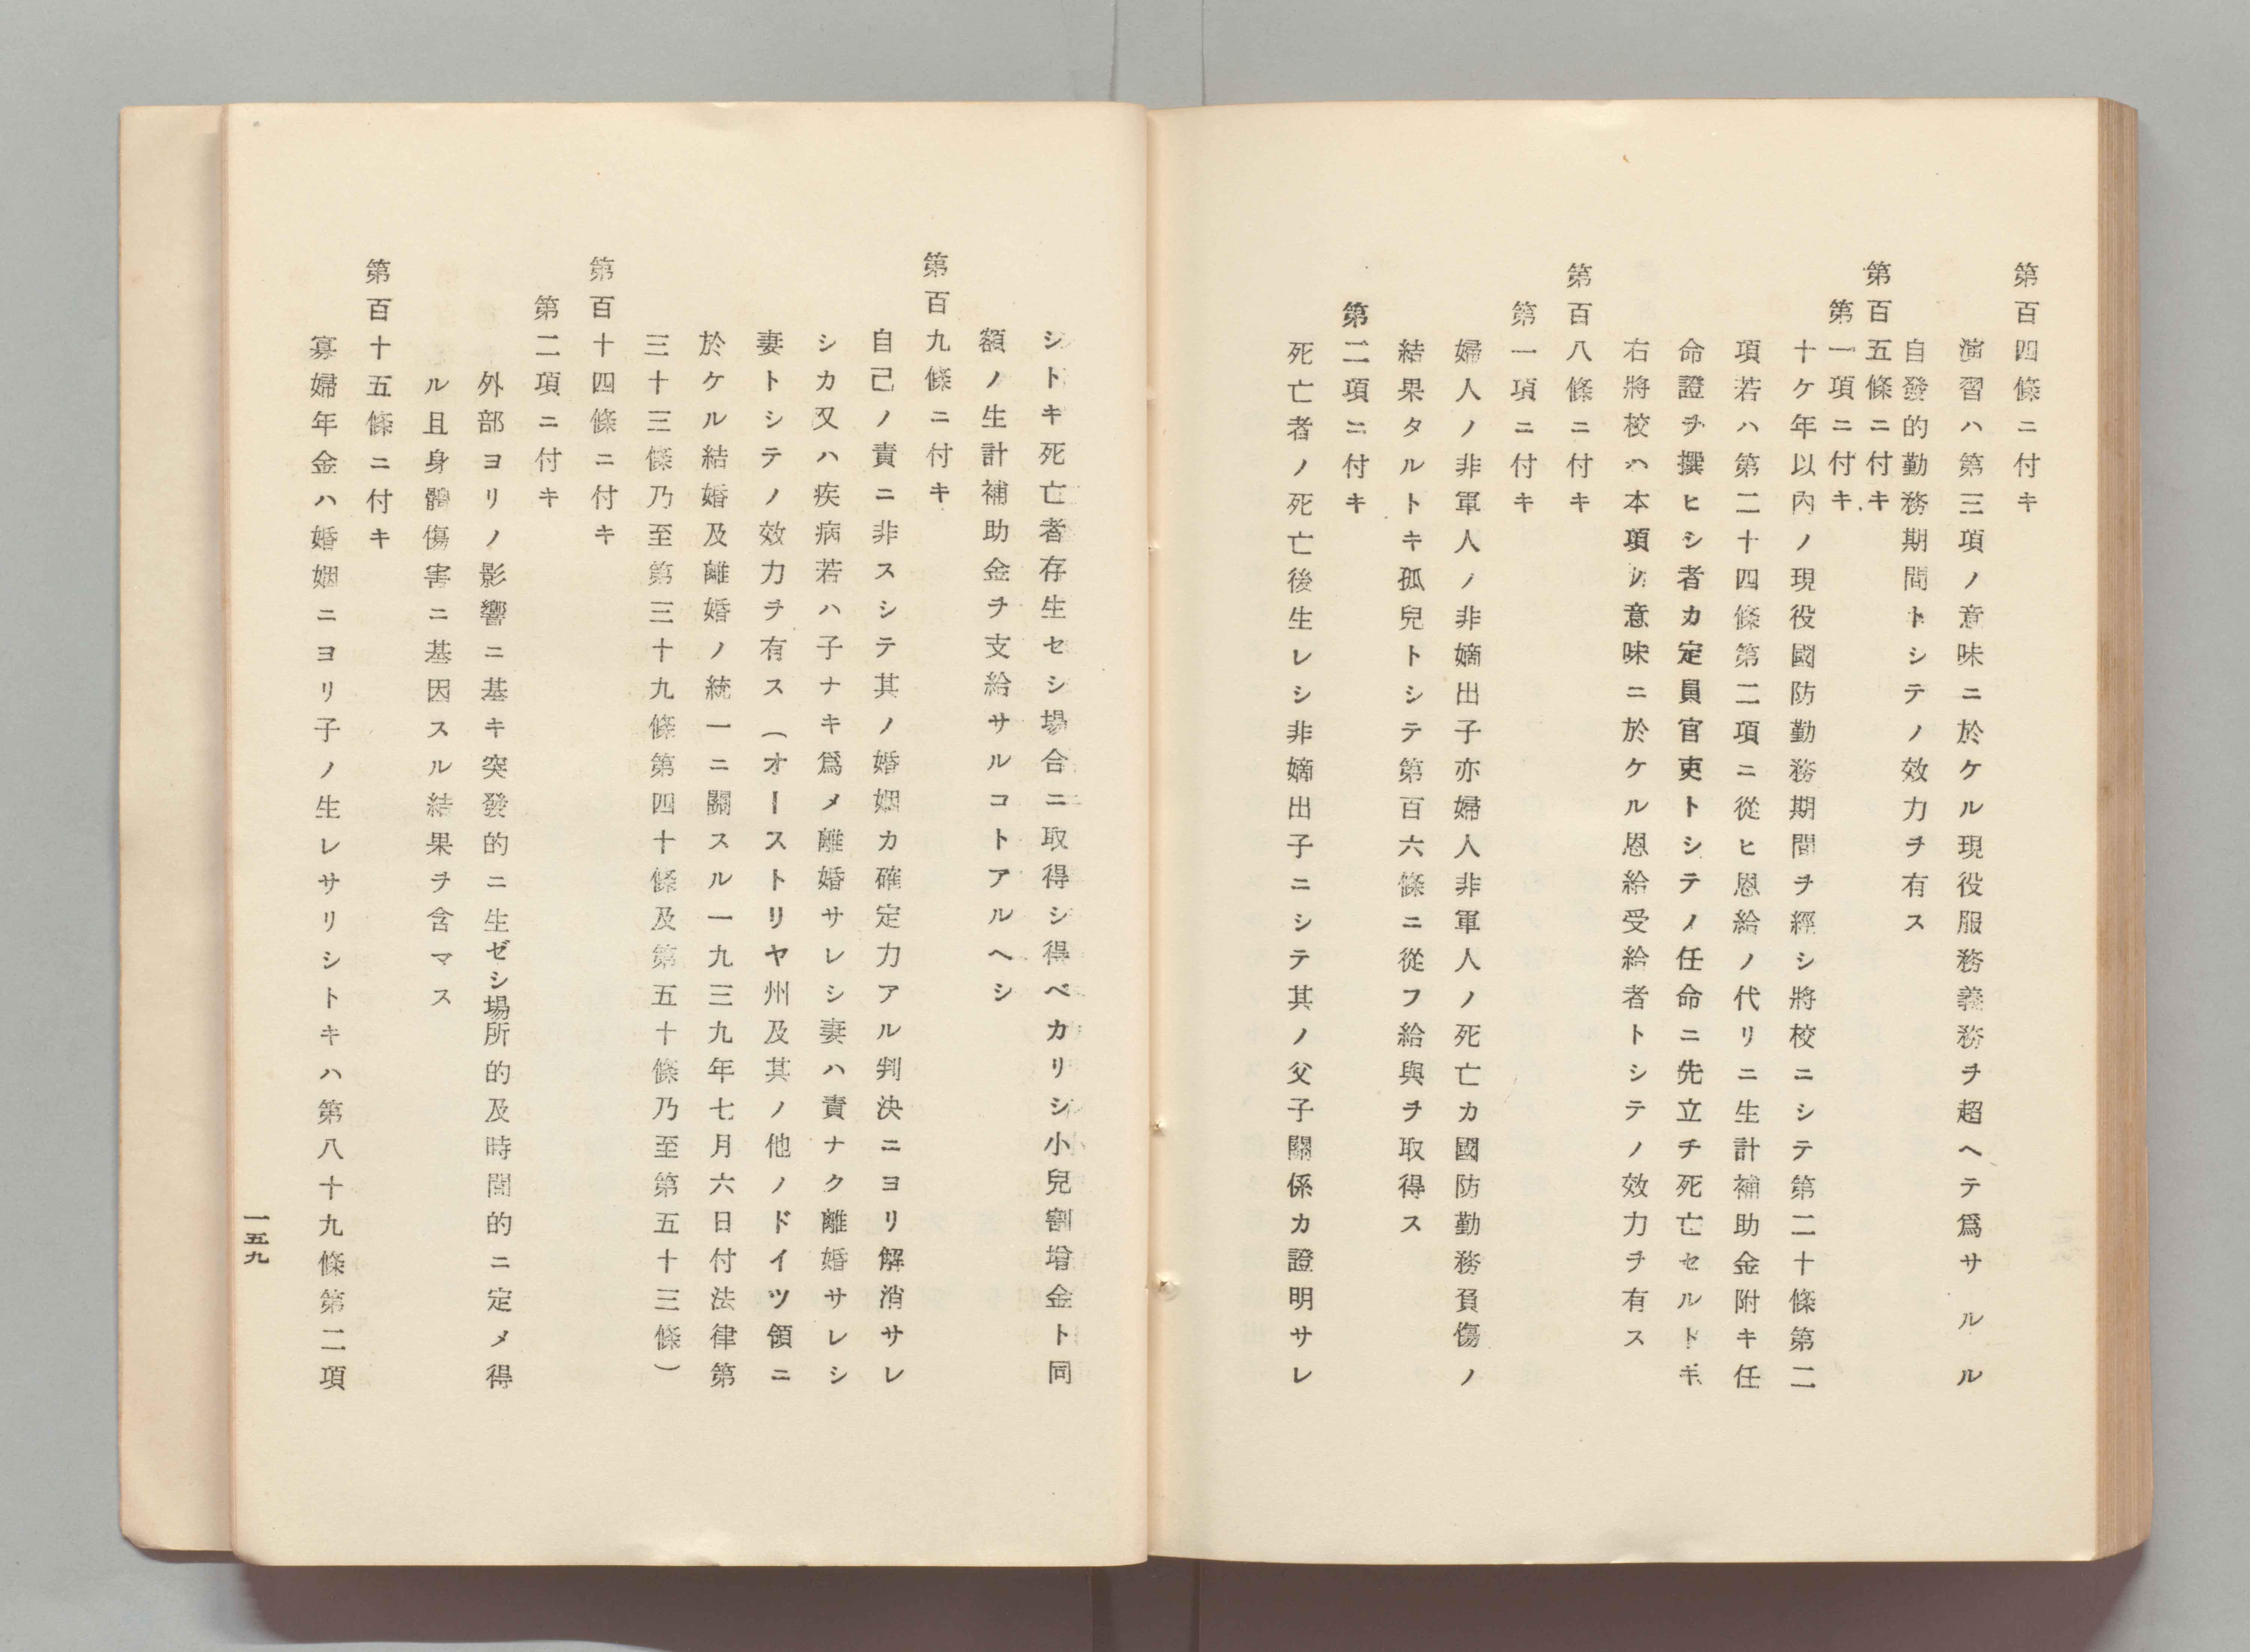 第百四條ニ付キ
演習ハ第三項ノ意味ニ於ケル現役服務義務ヲ超ヘテ爲サルル
自發的勤務期間トシテノ效力ヲ有ス
第百五條ニ付キ
第一項ニ付キ
十ケ年以內ノ現役國防勤務期間ヲ經シ將校ニシテ第二十條第二
項若ハ第二十四條第二項ニ從ヒ恩給ノ代リニ生計補助金附キ任
命證ヲ撰ヒシ者カ定員官吏トシテノ任命ニ先立チ死亡セルトキ
右將校ハ本項ノ意味ニ於ケル恩給受給者トシテノ效力ヲ有ス
第百八條ニ付キ
第一項ニ付キ
婦人ノ非軍人ノ非嫡出子亦婦人非軍人ノ死亡カ國防勤務負傷ノ
結果タルトキ孤兒トシテ第百六條ニ從フ給與ヲ取得ス
第二項ニ付キ
死亡者ノ死亡後生レシ非嫡出子ニシテ其ノ父子關係カ證明サレ
シトキ死亡者存生セシ場合ニ取得シ得ベカリシ小兒割增金ト同
額ノ生計補助金ヲ支給サルコトアルヘシ
第百九條ニ付キ
自己ノ責ニ非スシテ其ノ婚姻カ確定力アル判決ニヨリ解消サレ
シカ又ハ疾病若ハ子ナキ爲メ離婚サレシ妻ハ責ナク離婚サレシ
妻トシテノ效力ヲ有ス（オーストリヤ州及其ノ他ノドイツ領ニ
於ケル結婚及離婚ノ統一ニ關スル一九三九年七月六日付法律第
三十三條乃至第三十九條第四十條及第五十條乃至第五十三條）
第百十四條ニ付キ
第二項ニ付キ
外部ヨリノ影響ニ基キ突發的ニ生ゼシ場所的及時間的ニ定メ得
ル且身體傷害ニ基因スル結果ヲ含マス
第百十五條ニ付キ
寡婦年金ハ婚姻ニヨリ子ノ生レサリシトキハ第八十九條第二項
一五九